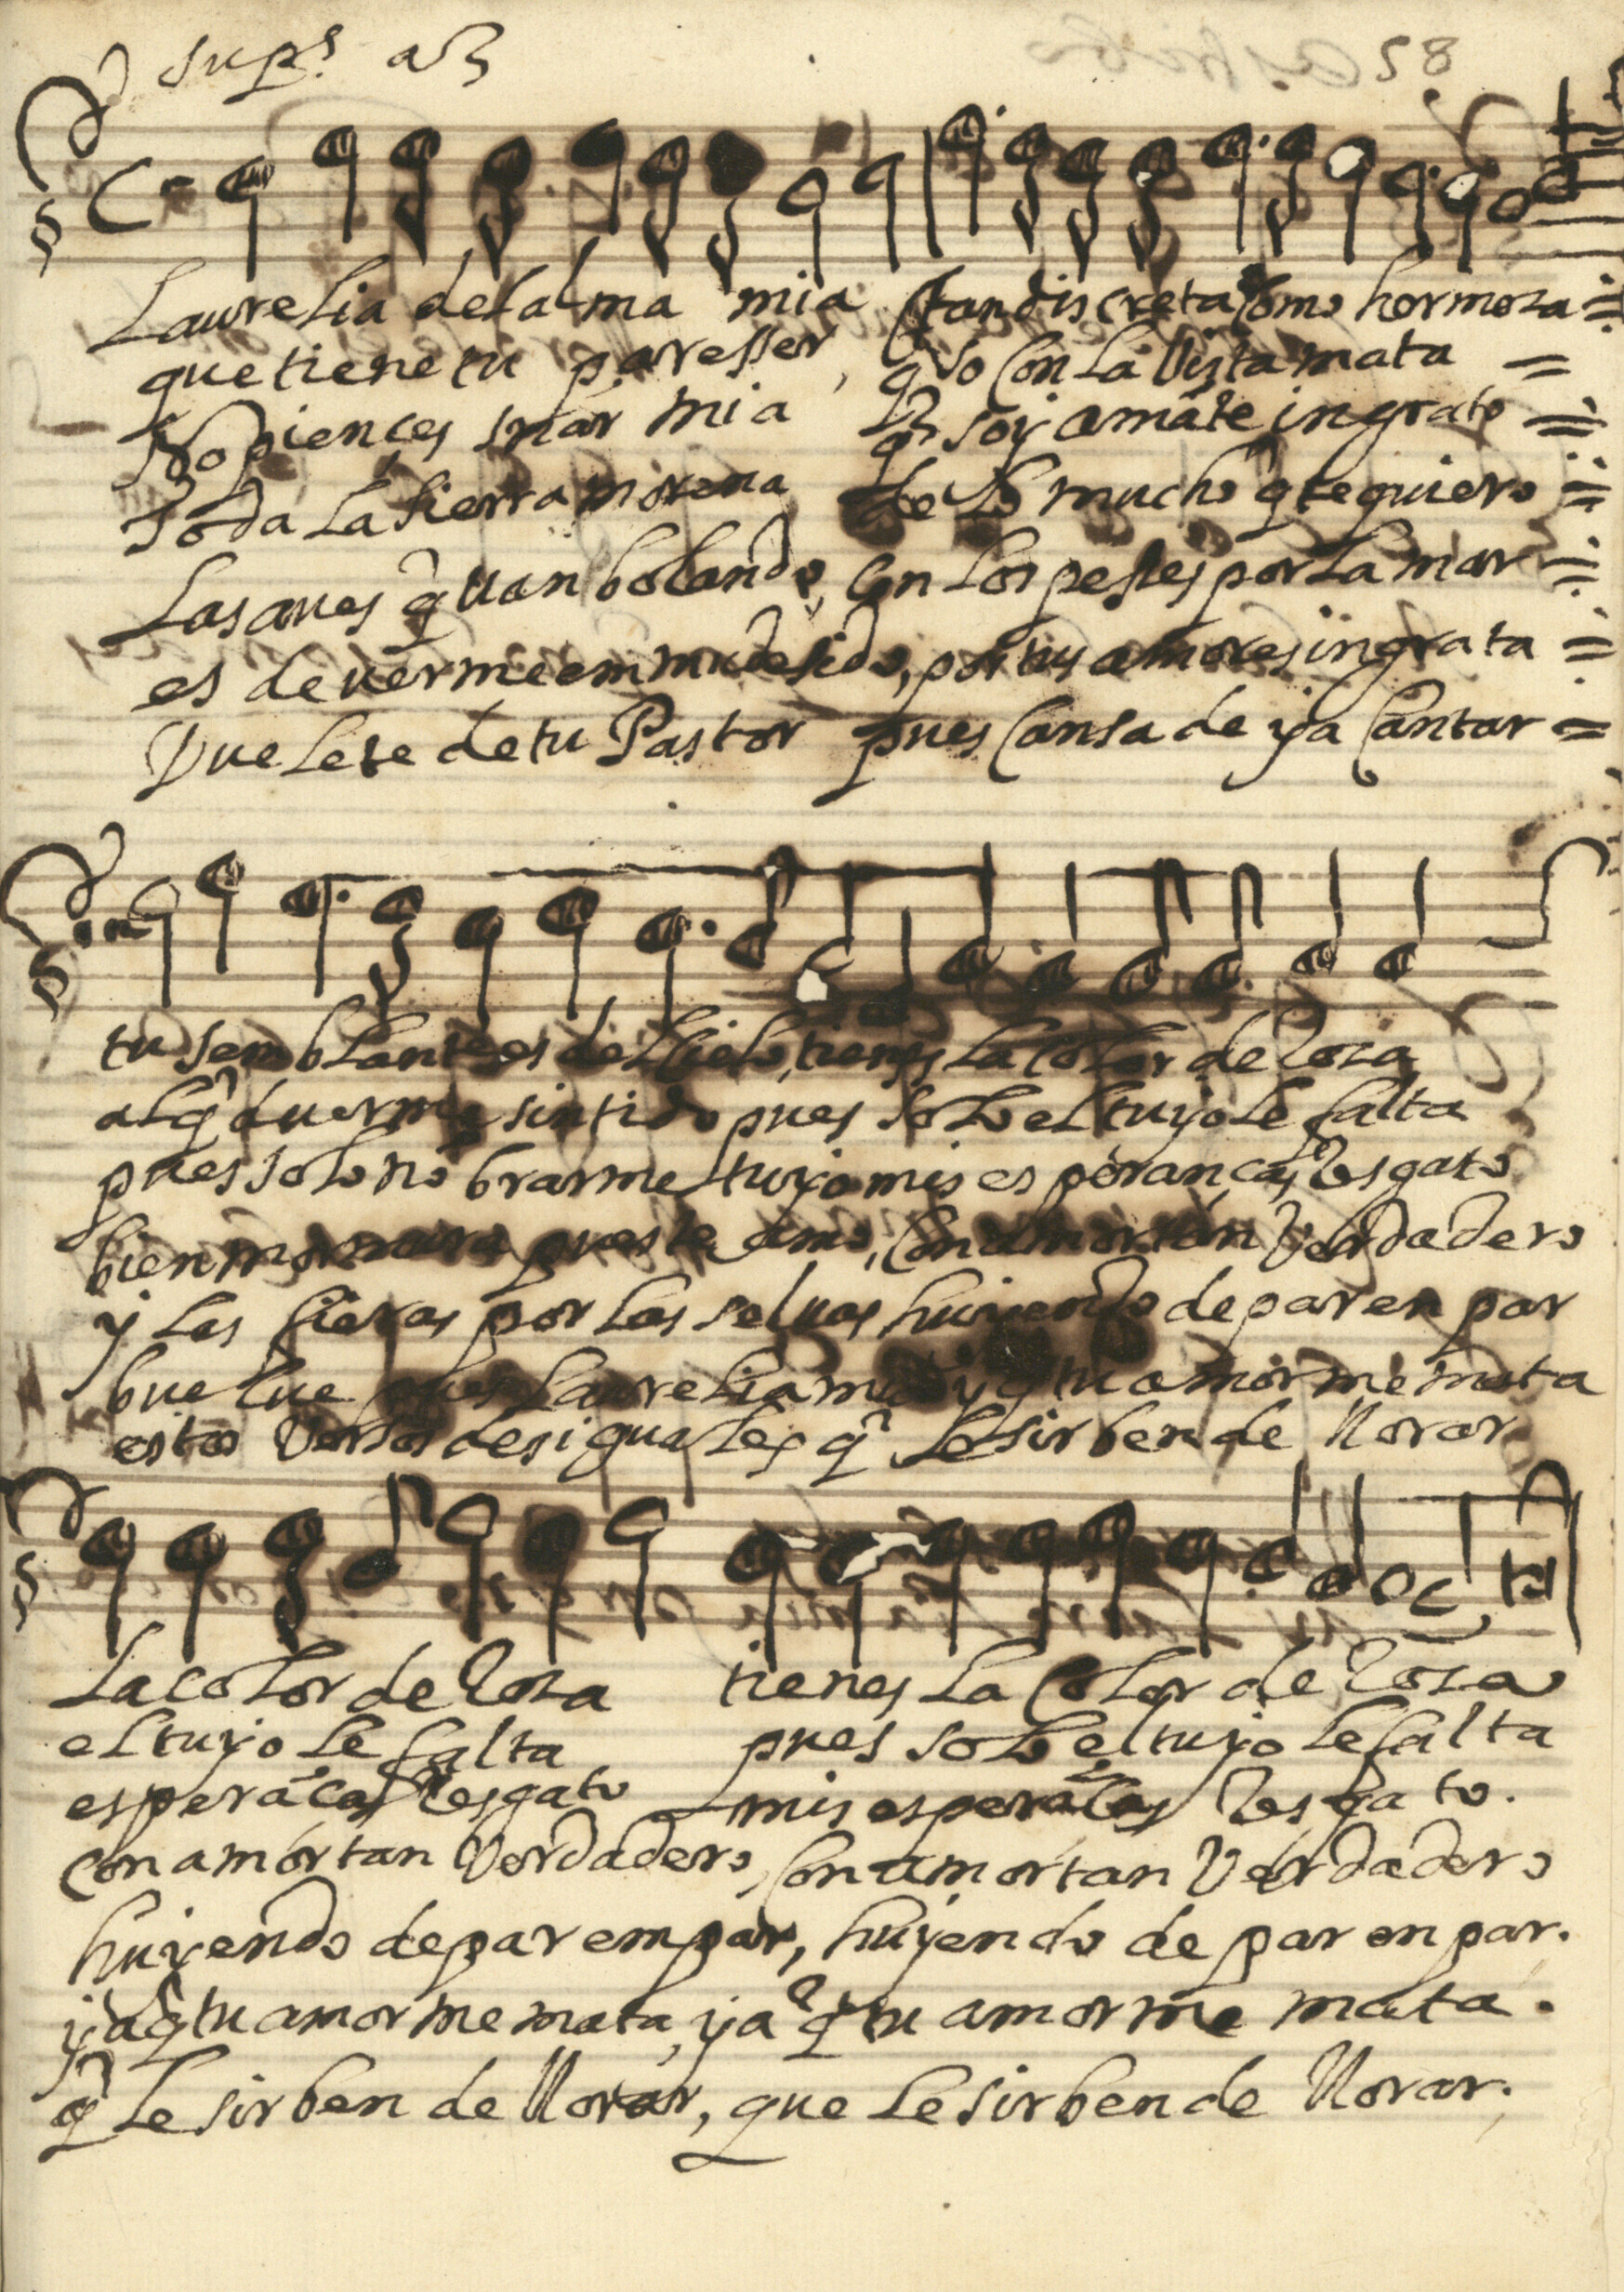 Sup.s a 3
58
Laurelia del alma mia tan discreta como hermosa
que tiene tu paresser, q̃ so con la vista mata
No piences mia q̃ soy amãte ingrato
Toda la sierra morena de lo mucho q̃ te quiero
Las aues q̃ uan bolando, con los pesses por la mar
es de uerme emmudesido, por tus amores ingrata
Duelete de tu Pastor pues cansa de ya cantar
tu semblante es del cielo, tienes la color de roza
al q̃ duerme sintido pues solo el tuyo le falta
pues solo nõbrarme tuyo mis esperanças resgato
bien pues te amo, con amor tan verdadero
y las fieras por las seluas huiendo de par en par
buelue pues Laurelia mia y q̃ tu amor me mata
estos versos desiguales q̃ le sirben de llorar
La color de roza tienes la color de roza
el tuyo le falta pues solo el tuyo le falta
esperãças resgato mis esperãças resgato.
con amor tan verdadero, con amor tan verdadero
huyendo de par em par, huyendo de par en par.
ya q̃ tu amor me mata, ya q̃ tu amor me mata.
q̃ le sirben de llorar, que le sirben de llorar.